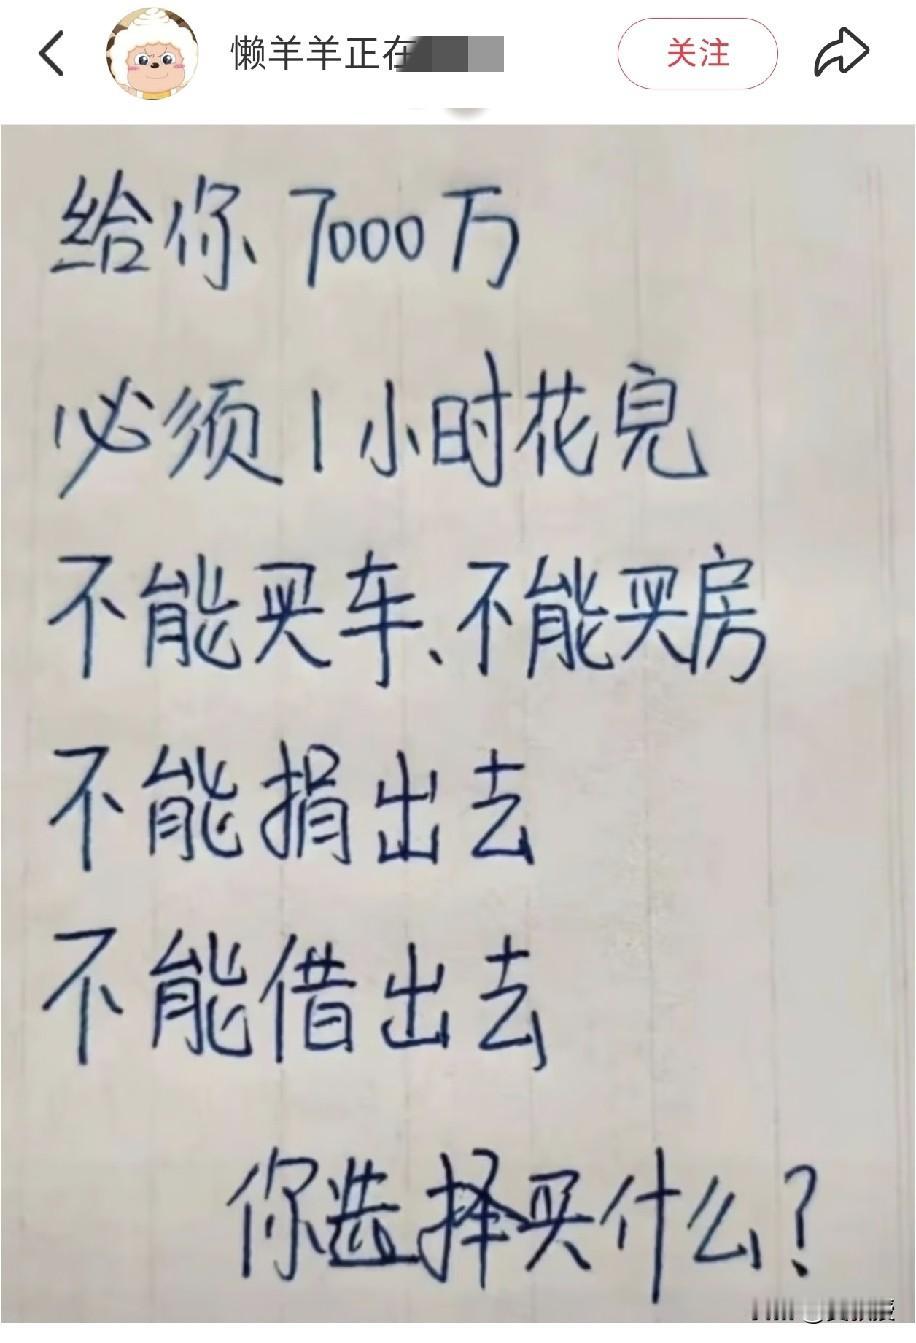 懒羊羊正在
关注
给你7000万
必须1小时花完
不能买车、不能买房
不能捐出去
不能借出去
你选择买什么?